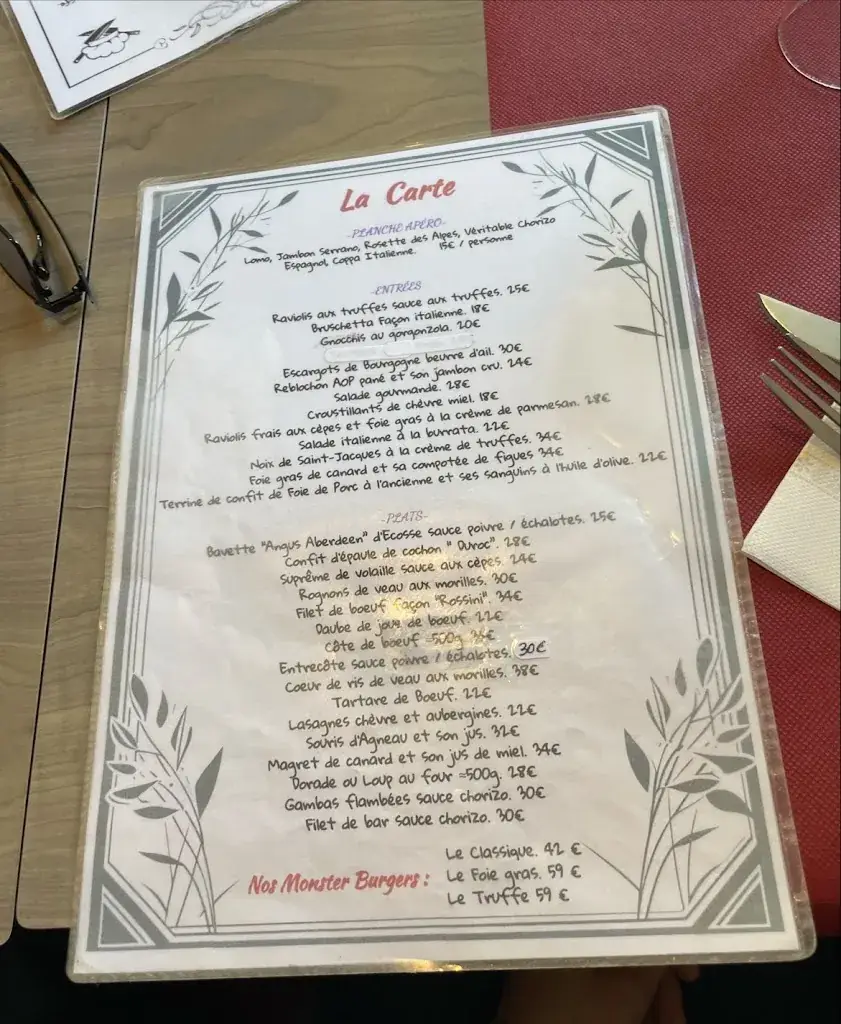 La Carte
-PLANCHE APÉRO-
Lomo, Jambon Serrano, Rosette des Alpes, Véritable Chorizo
Espagnol, Coppa Italienne. 15€ / personne
-ENTRÉES
Raviolis aux truffes sauce aux truffes. 25€
Bruschetta Façon italienne. 18€
Gnocchis au gorgonzola. 20€
Escargots de Bourgogne beurre d'ail. 30€
Reblochon AOP pané et son jambon cru. 24€
Salade gourmande. 28€
Croustillants de chèvre miel. 18€
Raviolis frais aux cèpes et foie gras à la crème de parmesan. 28€
Salade italienne à la burrata. 22€
Noix de Saint-Jacques à la crème de truffes. 34€
Foie gras de canard et sa compotée de figues 34€
Terrine de confit de Foie de Porc à l'ancienne et ses sanguins à l'huile d'olive. 22€
-PLATS-
Bavette "Angus Aberdeen" d'Ecosse sauce poivre / échalotes. 25€
Confit d'épaule de cochon " Duroc". 28€
Suprême de volaille sauce aux cêpes. 24€
Rognons de veau aux morilles. 30€
Filet de boeuf façon "Rossini". 34€
Daube de joue de boeuf. 22€
Côte de boeuf ≈500g.
Entrecôte sauce poivre / échalotes. 30€
Coeur de ris de veau aux morilles. 38€
Tartare de Boeuf. 22€
Lasagnes chèvre et aubergines. 22€
Souris d'Agneau et son jus. 32€
Magret de canard et son jus de miel. 34€
Dorade ou Loup au four ≈500g. 28€
Gambas flambées sauce chorizo. 30€
Filet de bar sauce chorizo. 30€
Nos Monster Burgers :
Le Classique. 42 €
Le Foie gras. 59 €
Le Truffe 59 €